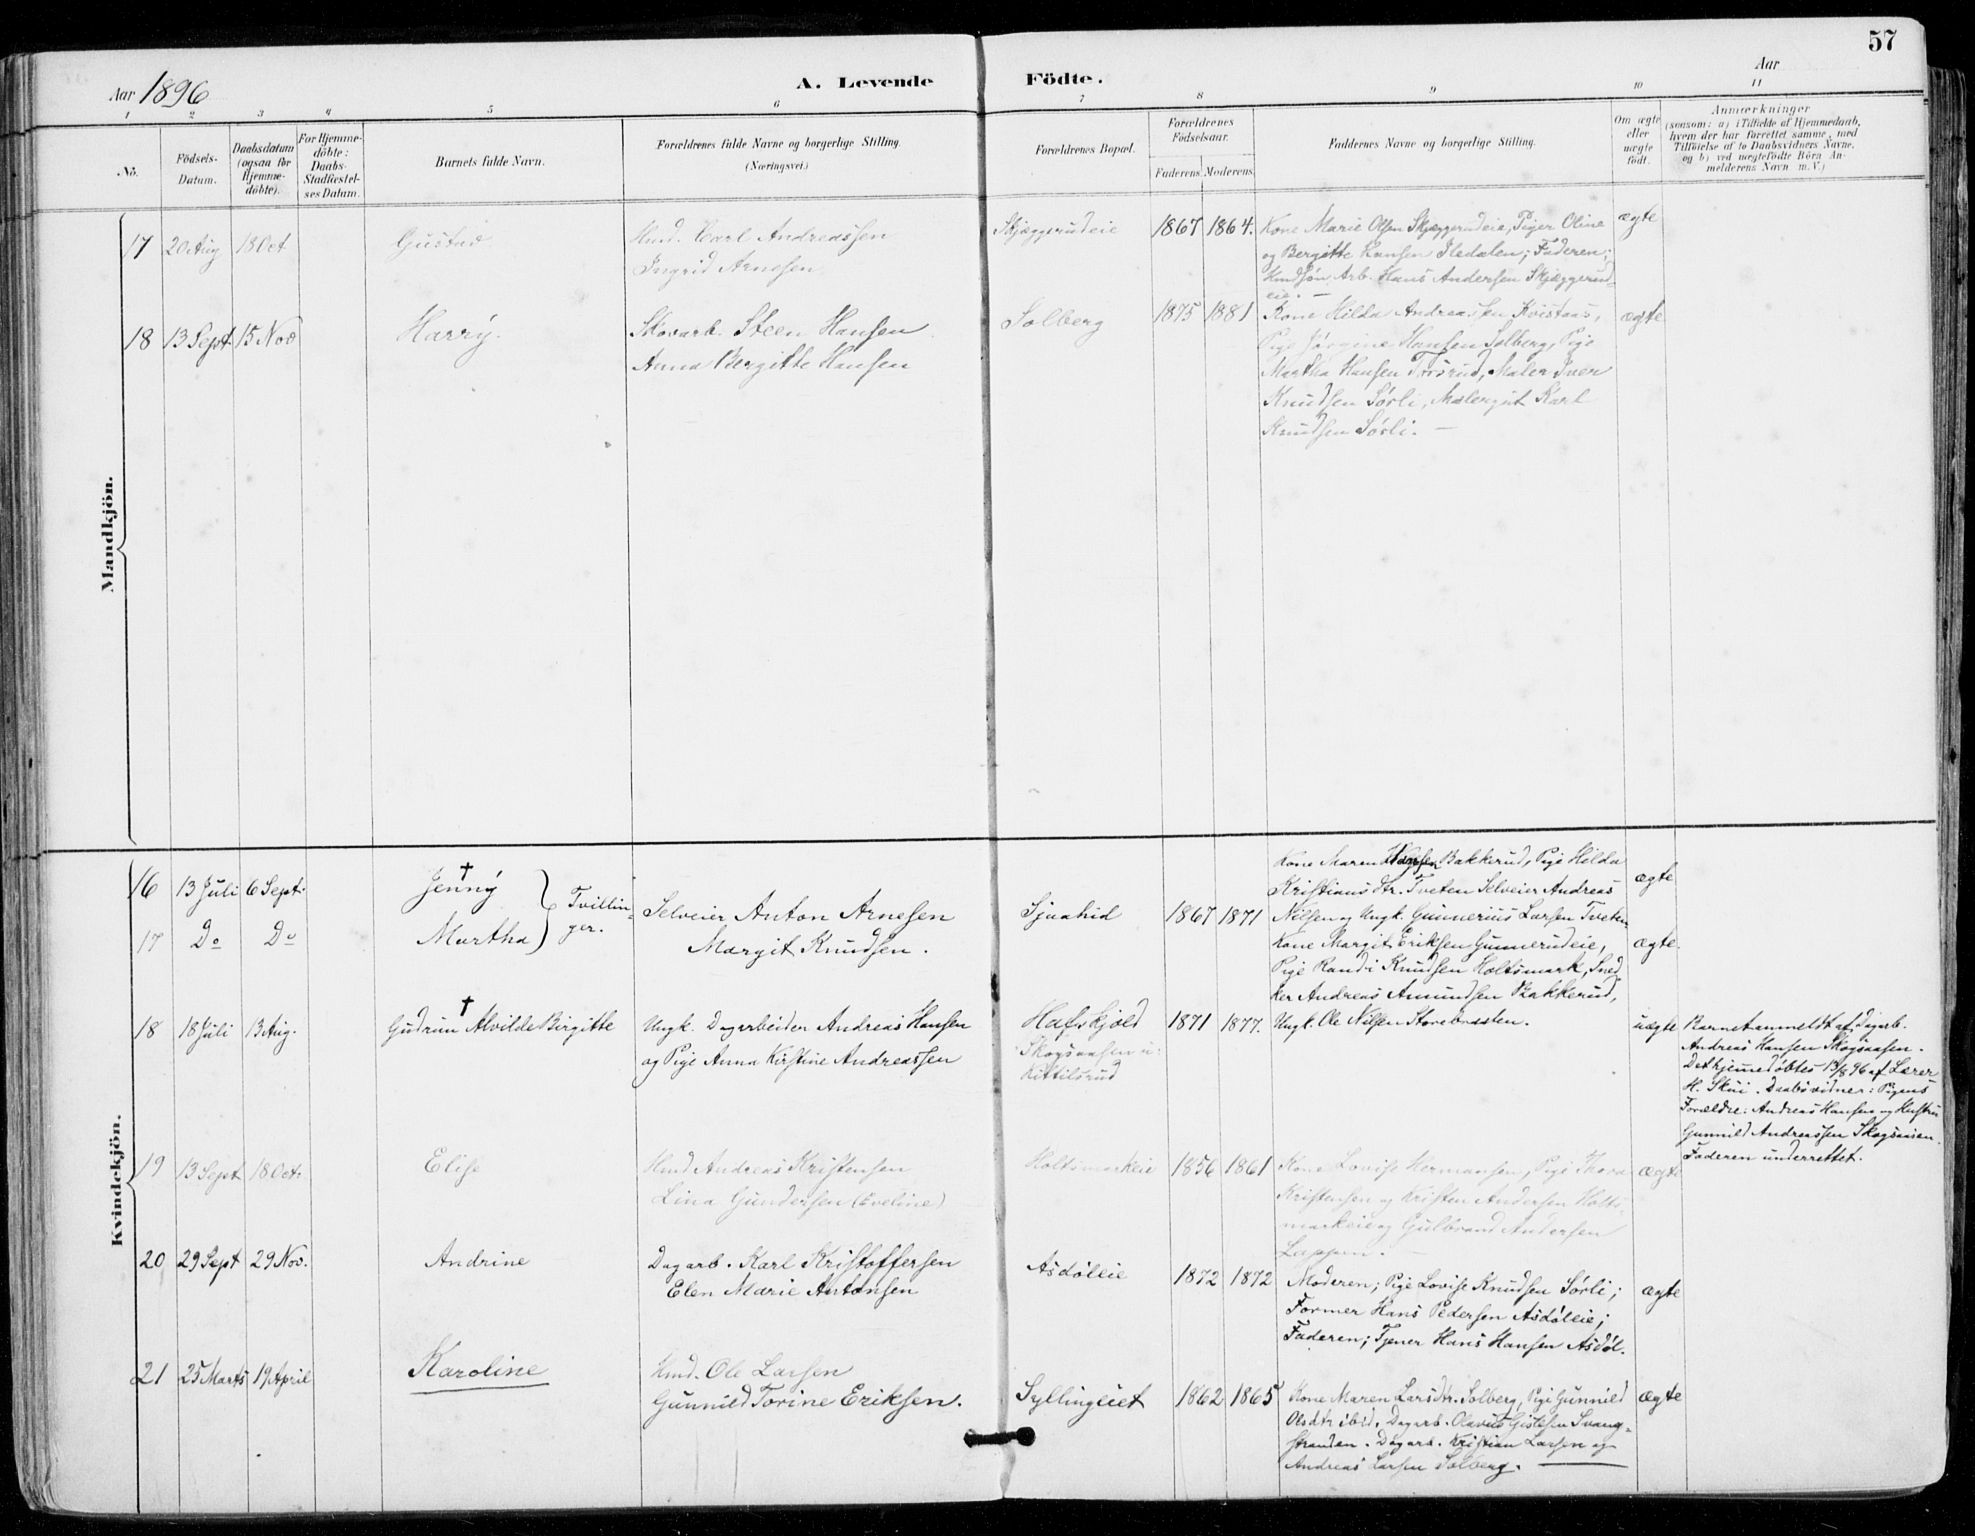 57
Aar 1896
A. Levende Födte.
Aar
1 2 3 4 5 6 7 8 9 10 11
No.
Födsels-Datum.
Daabsdatum (ogsaa for Hjemme-döbte).
For Hjemme-döbte: Daabs-Stadfæstel-ses Datum.
Barnets fulde Navn.
Forældrenes fulde Navne og borgerlige Stilling. (Næringsvei.)
Forældrenes Bopæl.
Forældrenes Födselsaar.
Faderens. Moderens.
Faddernes Navne og borgerlige Stilling.
Om ægte eller uægte födt.
Anmærkninger
(saasom: a) i Tilfælde af Hjemmedaab,
hvem der har forrettet samme, med
Tilföielse af to Daabsvidners Navne,
og b) ved uægtefödte Börn An-
melderens Navn m. V.)
Mandkjön.
17 20 Aug 18 Oct Gustav Husd. Carl Andreassen Skjæggerudeie 1867 1864. Kone Marie Olsen Skjæggerudeie, Piger Oline ægte
Ingrid Arnesen og Bergitte Hansen Iledalen; Faderen;
Husdsøn Arb. Hans Andersen Skjæggerud-
eie. —
18 13 Sept 15 Nov Harry. Skovarb. Steen Hansen Solberg 1875 1881 Kone Hilda Andreassen Kvistaas, ægte
Anna Bergitte Hansen Pige Jørgine Hansen Solberg, Pige
Martha Hansen Torsrud, Maler Iver
Knudsen Sørli, Malergut Karl
Knudsen Sørli. —
Kvindekjön.
16 13 Juli 6 Sept. Jenny † Tvillin-
ger. Selveier Anton Arnesen Sjaahid 1867 1871 Kone Maren Hansen Bakkerud, Pige Hilda ægte
Kristians dtr. Tveten Selveier Andreas
Nilsen og Ungk. Gunnerius Larsen Tveten
17 Do Do Martha Margit Knudsen. Kone Margit Eriksen Gunnerudeie, ægte.
Pige Randi Knudsen Holtsmark, Sned
ker Andreas Amundsen Bakkerud,
Ungk. Ole Nilsen Storebraaten.
18 18 Juli 13 Aug. Gudrun Alvilde Birgitte † Ungk. Dagarbeider Andreas Hansen Hafskjold 1871 1877. uægte
og Pige Anna Kirstine Andreassen Skogsaasen u.
Kittilsrud
Barnet anmeldt af Dagarb.
Andreas Hansen Skogsaasen.
Det hjemmedøbtes 13/8 96 af Lærer
H. Skui. Daabsvidner: Pigens
Forældre: Andreas Hansen og Hustru
Gunnild Andreassen Skogsaasen.
Faderen underrettet.
19 13 Sept 18 Oct. Elise Husd Andreas Kristensen Holtsmarkeie 1856 1861 Kone Lovise Hermansen, Pige Thora ægte
Lina Gundersen (Eveline) Kristensen og Kristen Andersen Holts-
markeie og Gulbrand Andersen
Lappen. —
20 29 Sept 29 Nov. Andrine Dagarb. Karl Kristoffersen Asdøleie 1872 1872 Moderen; Pige Lovise Knudsen Sørli; ægte
Elen Marie Antonsen Former Hans Pedersen Asdøleie;
Faderen; Tjener Hans Hansen Asdøl.
21 25 Marts 19 April Karoline Husd. Ole Larsen Syllingeiet 1862 1865 Kone Maren Larsdtr. Solberg, Pige Gunnild ægte
Gunnild Torine Eriksen. Olsdtr ibid. Dagarb. Olavus Gislesen Svang-
stranden. Dagarb. Kristian Larsen og
Andreas Larsen Solberg.